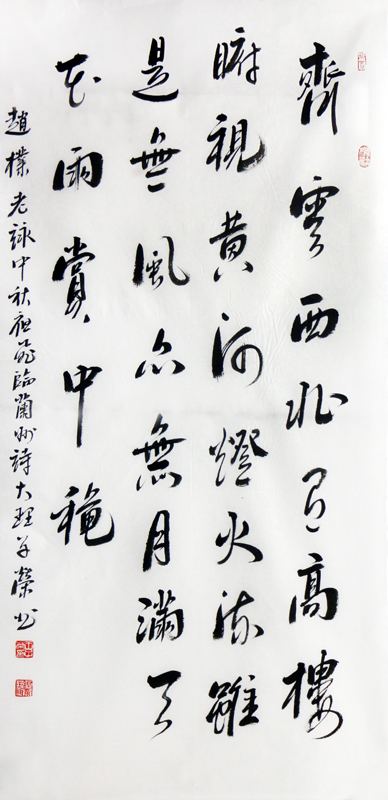 齊雲西北有高樓
俯視黄河燈火流雖
是無風亦無月滿天
花雨賞中穐
趙樸老詠中秋臨蘭州詩大理榮书